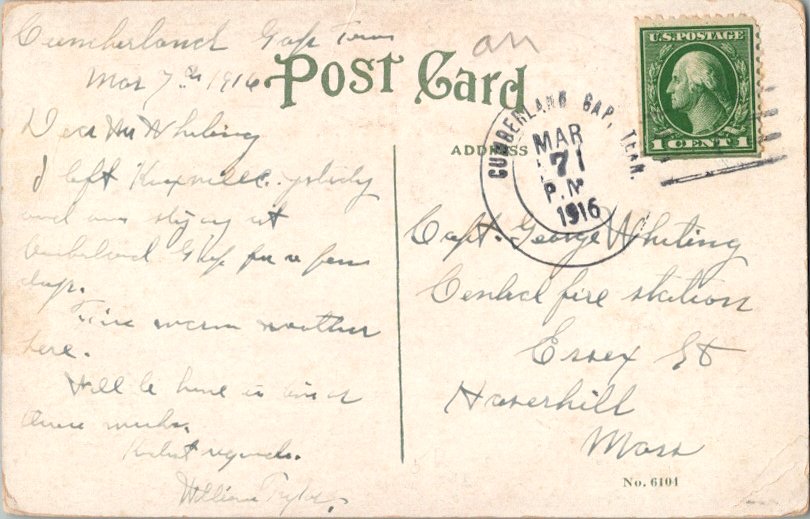 Cumberland Gap Tenn
Mar 7th 1916
an
Post Card
ADDRESS
U.S. POSTAGE
1 CENT 1
CUMBERLAND GAP, TENN.
MAR
7
P.M
1916
Dear Mr Whiting
I left Knoxville
and am stoping at
Cumberland Gap for a few
days.
Fine warm weather
here.
Will be home in
three weeks.
Kindest regards.
William
Capt. George Whiting
Central fire station
Essex St
Haverhill
Mass
No. 6104